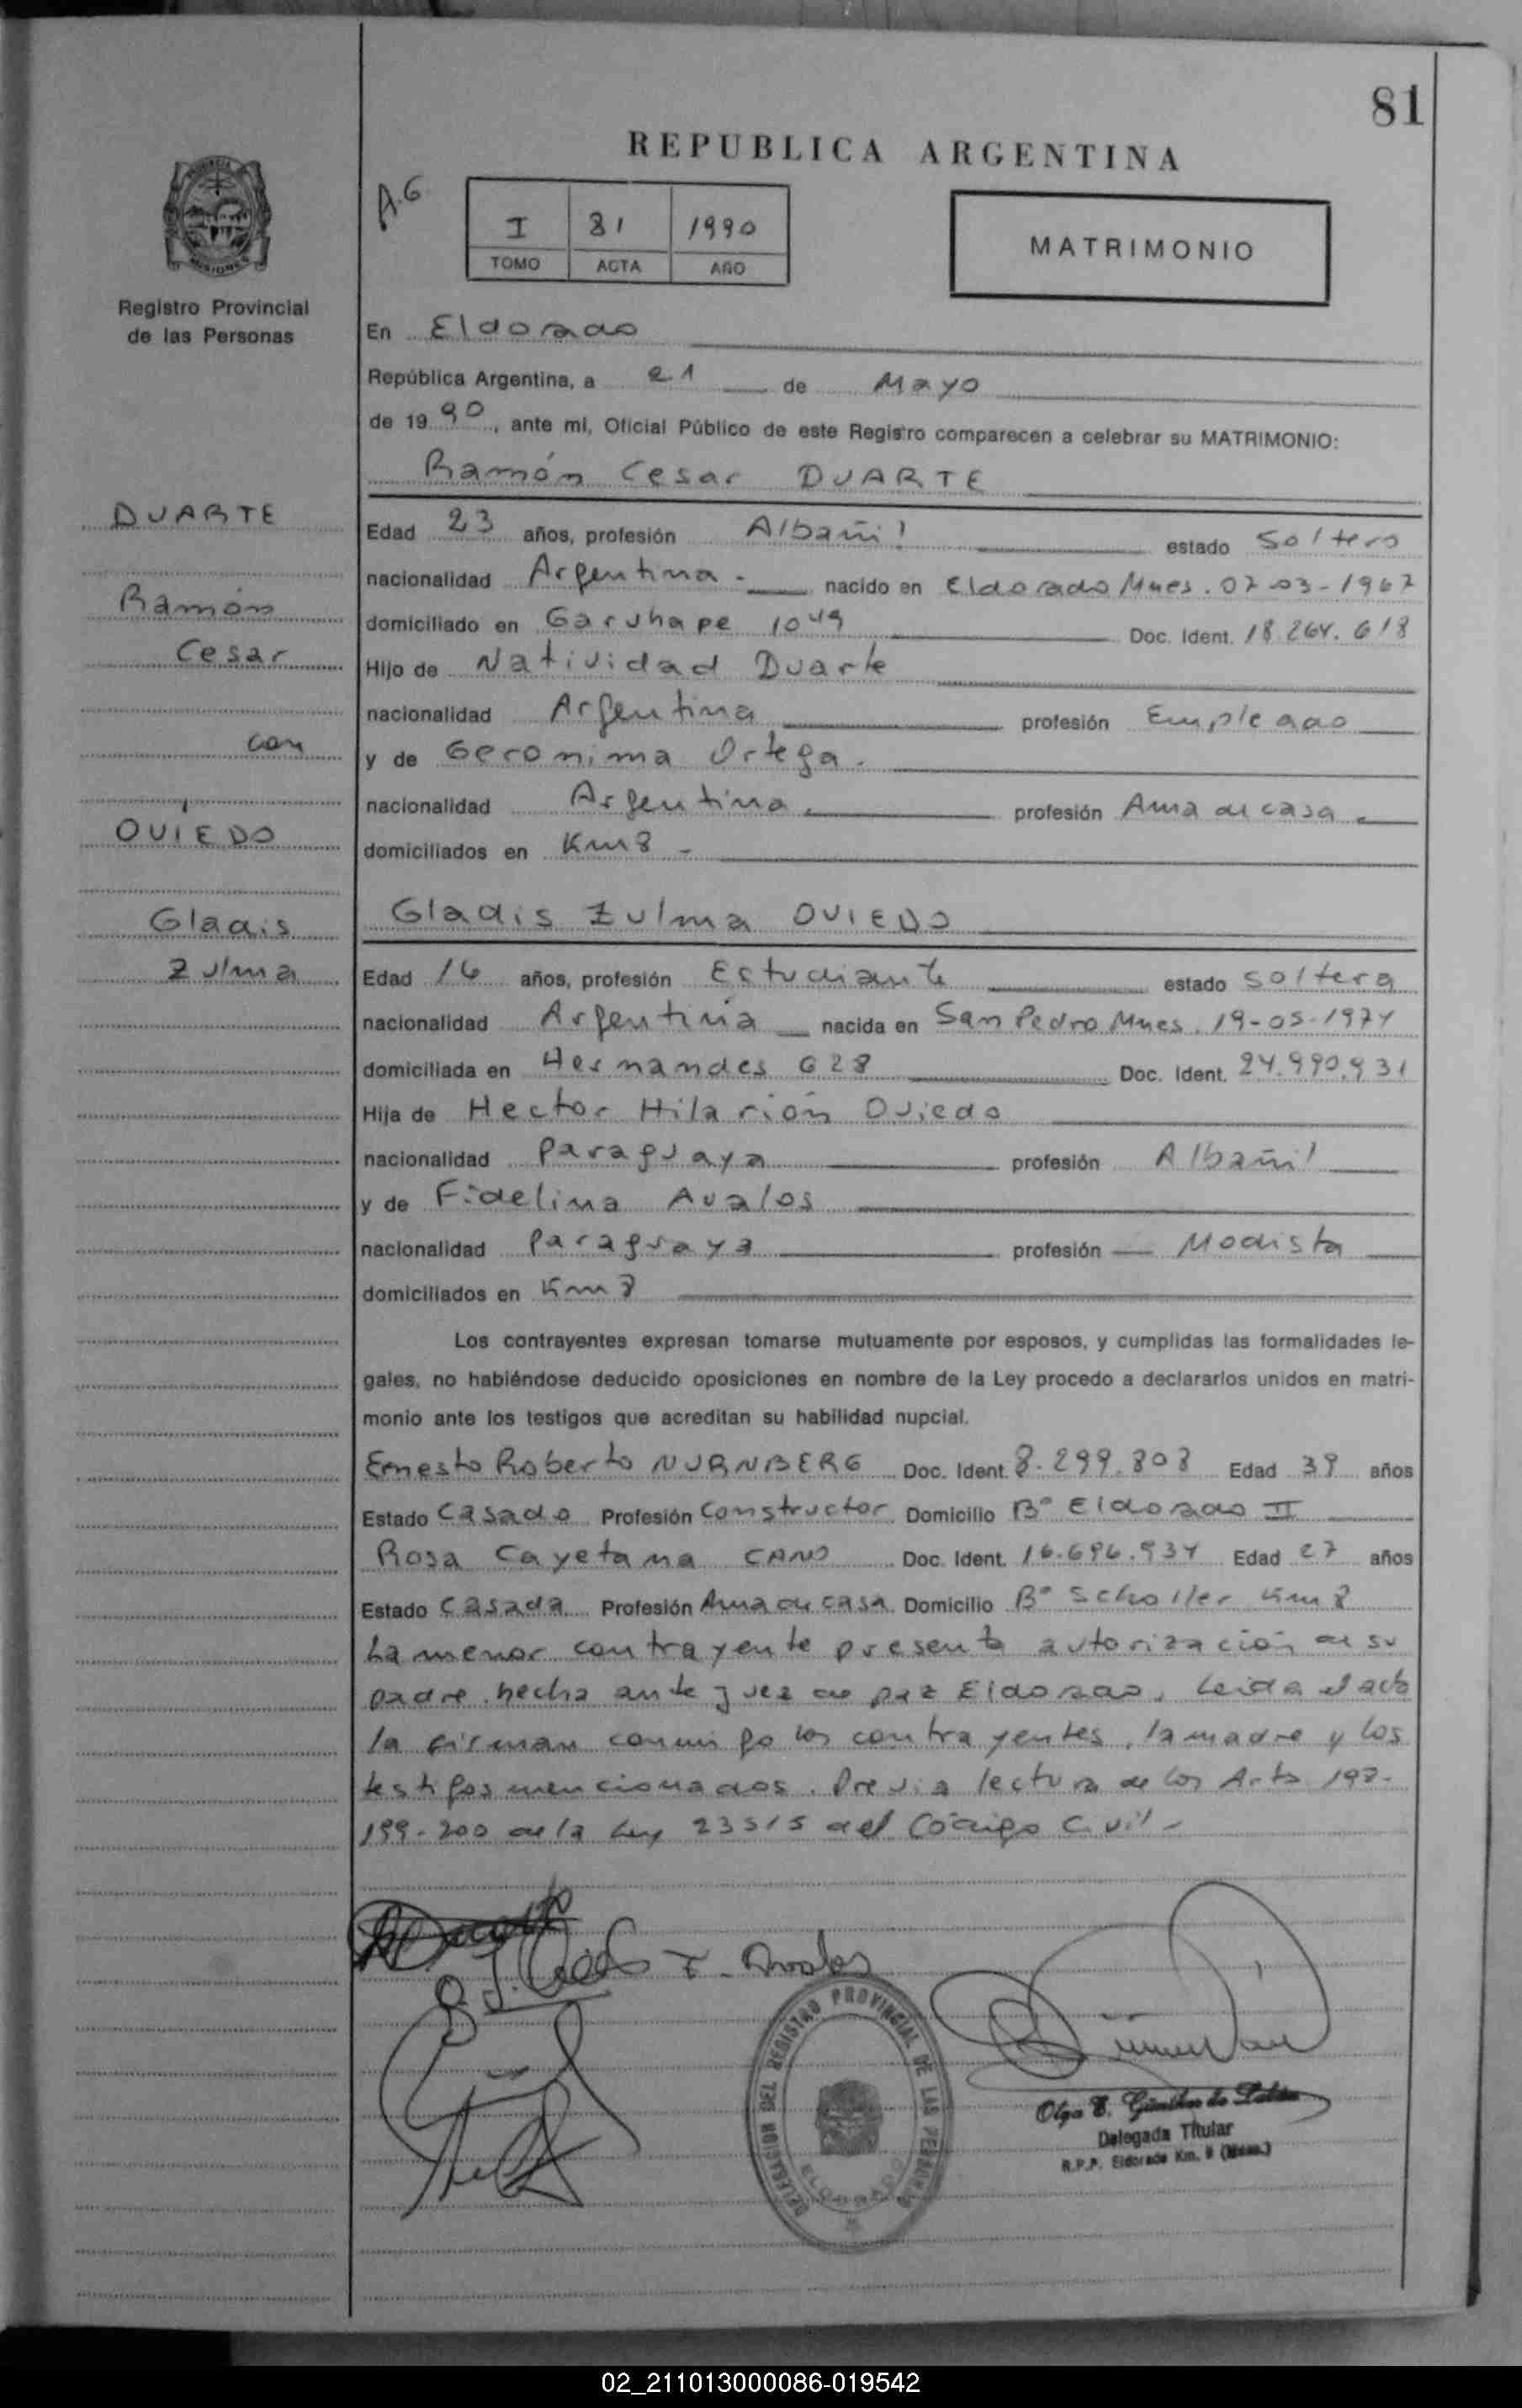 81
REPUBLICA ARGENTINA
A.G
I 81 1990
TOMO ACTA AÑO
MATRIMONIO
Registro Provincial
de las Personas
En Eldorado
República Argentina, a 21 de Mayo
de 1990, ante mi, Oficial Público de este Registro comparecen a celebrar su MATRIMONIO:
Ramón Cesar DUARTE
DUARTE
Ramón
Cesar
con
OVIEDO
Gladis
Zulma
Edad 23 años, profesión Albañil estado Soltero
nacionalidad Argentina.- nacido en Eldorado Mnes. 07-03-1967
domiciliado en Garuhape 1049 Doc. Ident. 18.264.618
Hijo de Natividad Duarte
nacionalidad Argentina profesión Empleado
y de Geronima Ortega.
nacionalidad Argentina. profesión Ama de casa.
domiciliados en Km 8 -
Gladis Zulma OVIEDO
Edad 16 años, profesión Estudiante estado Soltera
nacionalidad Argentina nacida en San Pedro Mnes. 19-05-1974
domiciliada en Hernandes 628 Doc. Ident. 24.990.931
Hija de Hector Hilarión Oviedo
nacionalidad Paraguaya profesión Albañil
y de Fidelina Avalos
nacionalidad Paraguaya profesión Modista
domiciliados en Km 8
Los contrayentes expresan tomarse mutuamente por esposos, y cumplidas las formalidades le-
gales, no habiéndose deducido oposiciones en nombre de la Ley procedo a declararlos unidos en matri-
monio ante los testigos que acreditan su habilidad nupcial.
Ernesto Roberto NURNBERG Doc. Ident. 8.299.808 Edad 39 años
Estado Casado Profesión Constructor Domicilio B° Eldorado II
Rosa Cayetana CANO Doc. Ident. 16.696.934 Edad 27 años
Estado Casada Profesión Ama de casa Domicilio B° Scholler Km 8
La menor contrayente presenta autorización de su
padre hecha ante juez de paz Eldorado. Leida el acta
la firman conmigo los contrayentes, la madre y los
testigos mencionados. Previa lectura de los Arts 198-
199-200 de la Ley 23515 del Código Civil -
F. Avalos
DELEGACION DEL REGISTRO PROVINCIAL DE LAS PERSONAS
ELDORADO
Olga E. Günther de
Delegada Titular
R.P.P. Eldorado Km. 9 (Mnes.)
02_211013000086-019542